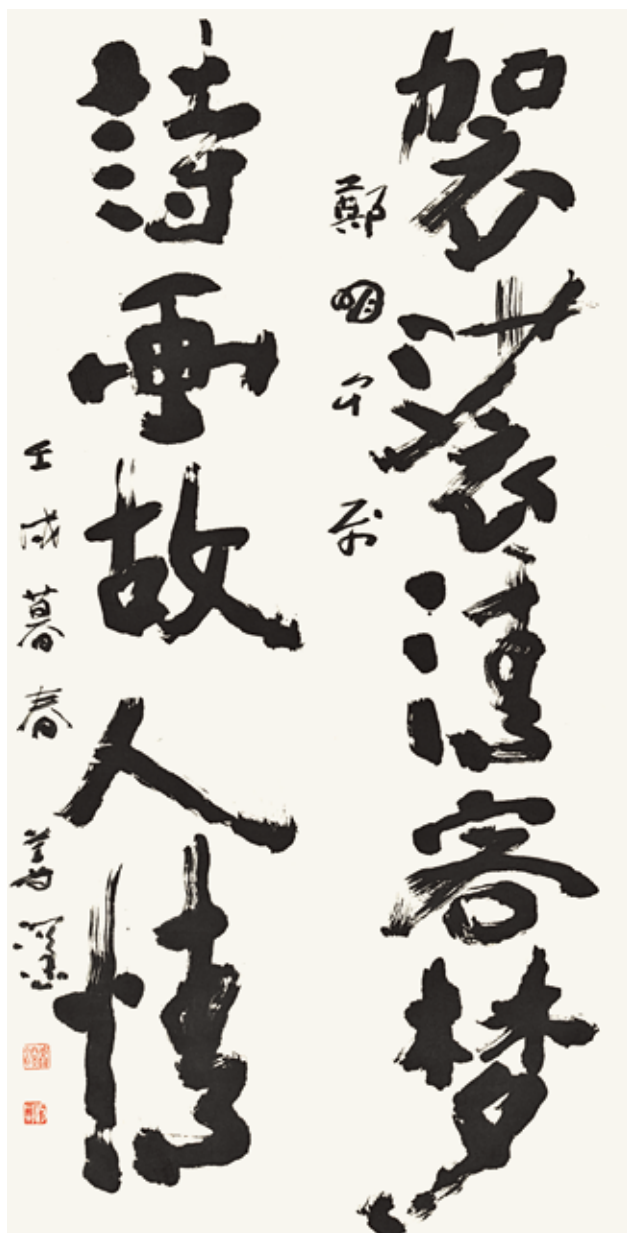 袈裟清客梦
鄭明
詩画故人情
壬戌暮春